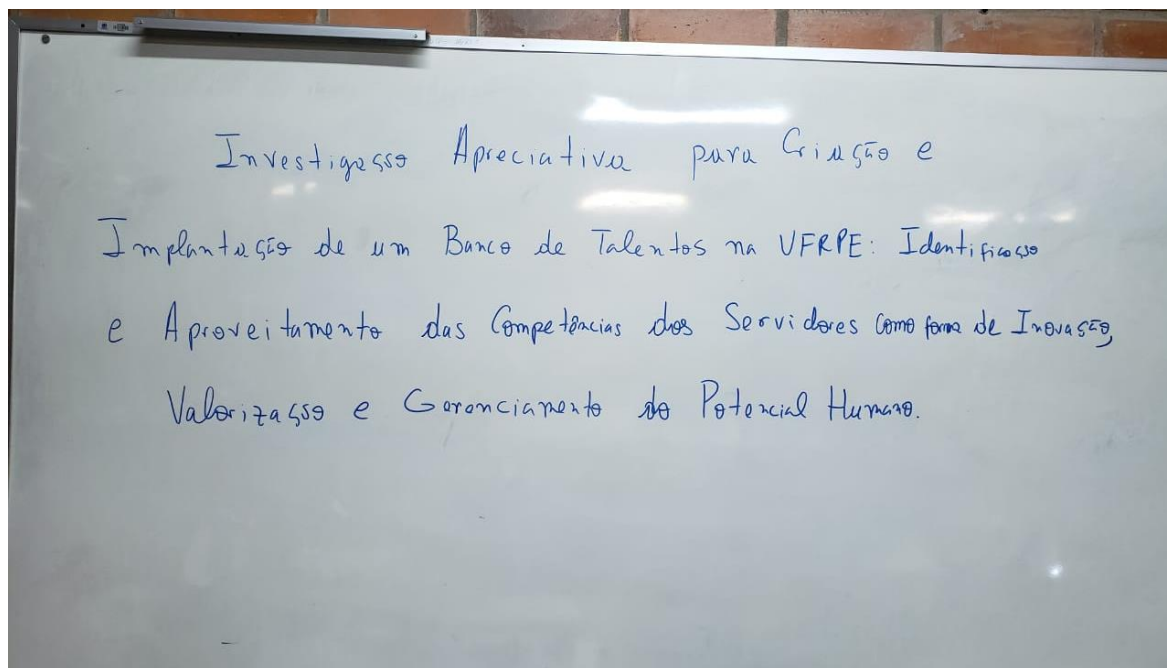 Investigação Apreciativa para Criação e
Implantação de um Banco de Talentos na UFRPE: Identificação
e Aproveitamento das Competências dos Servidores como forma de Inovação,
Valorização e Gerenciamento do Potencial Humano.